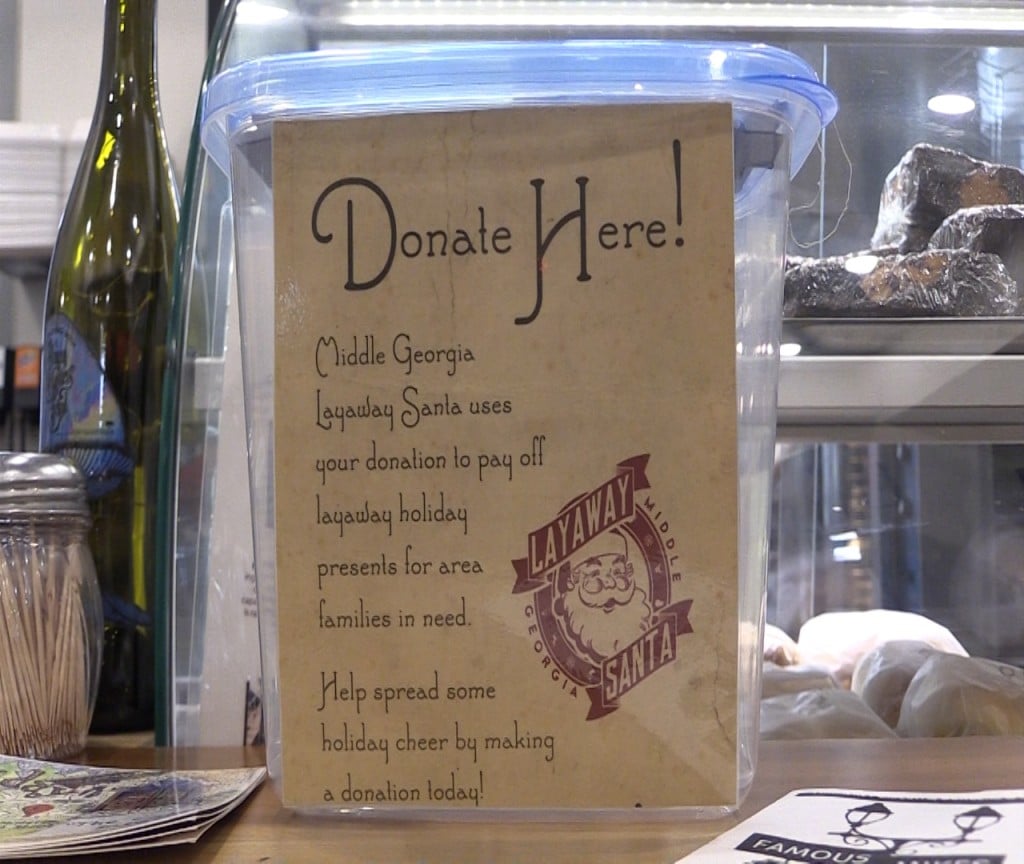 Donate Here!
Middle Georgia
Layaway Santa uses
your donation to pay off
layaway holiday
presents for area
families in need.
LAYAWAY
MIDDLE
GEORGIA
SANTA
Help spread some
holiday cheer by making
a donation today!
FAMOUS